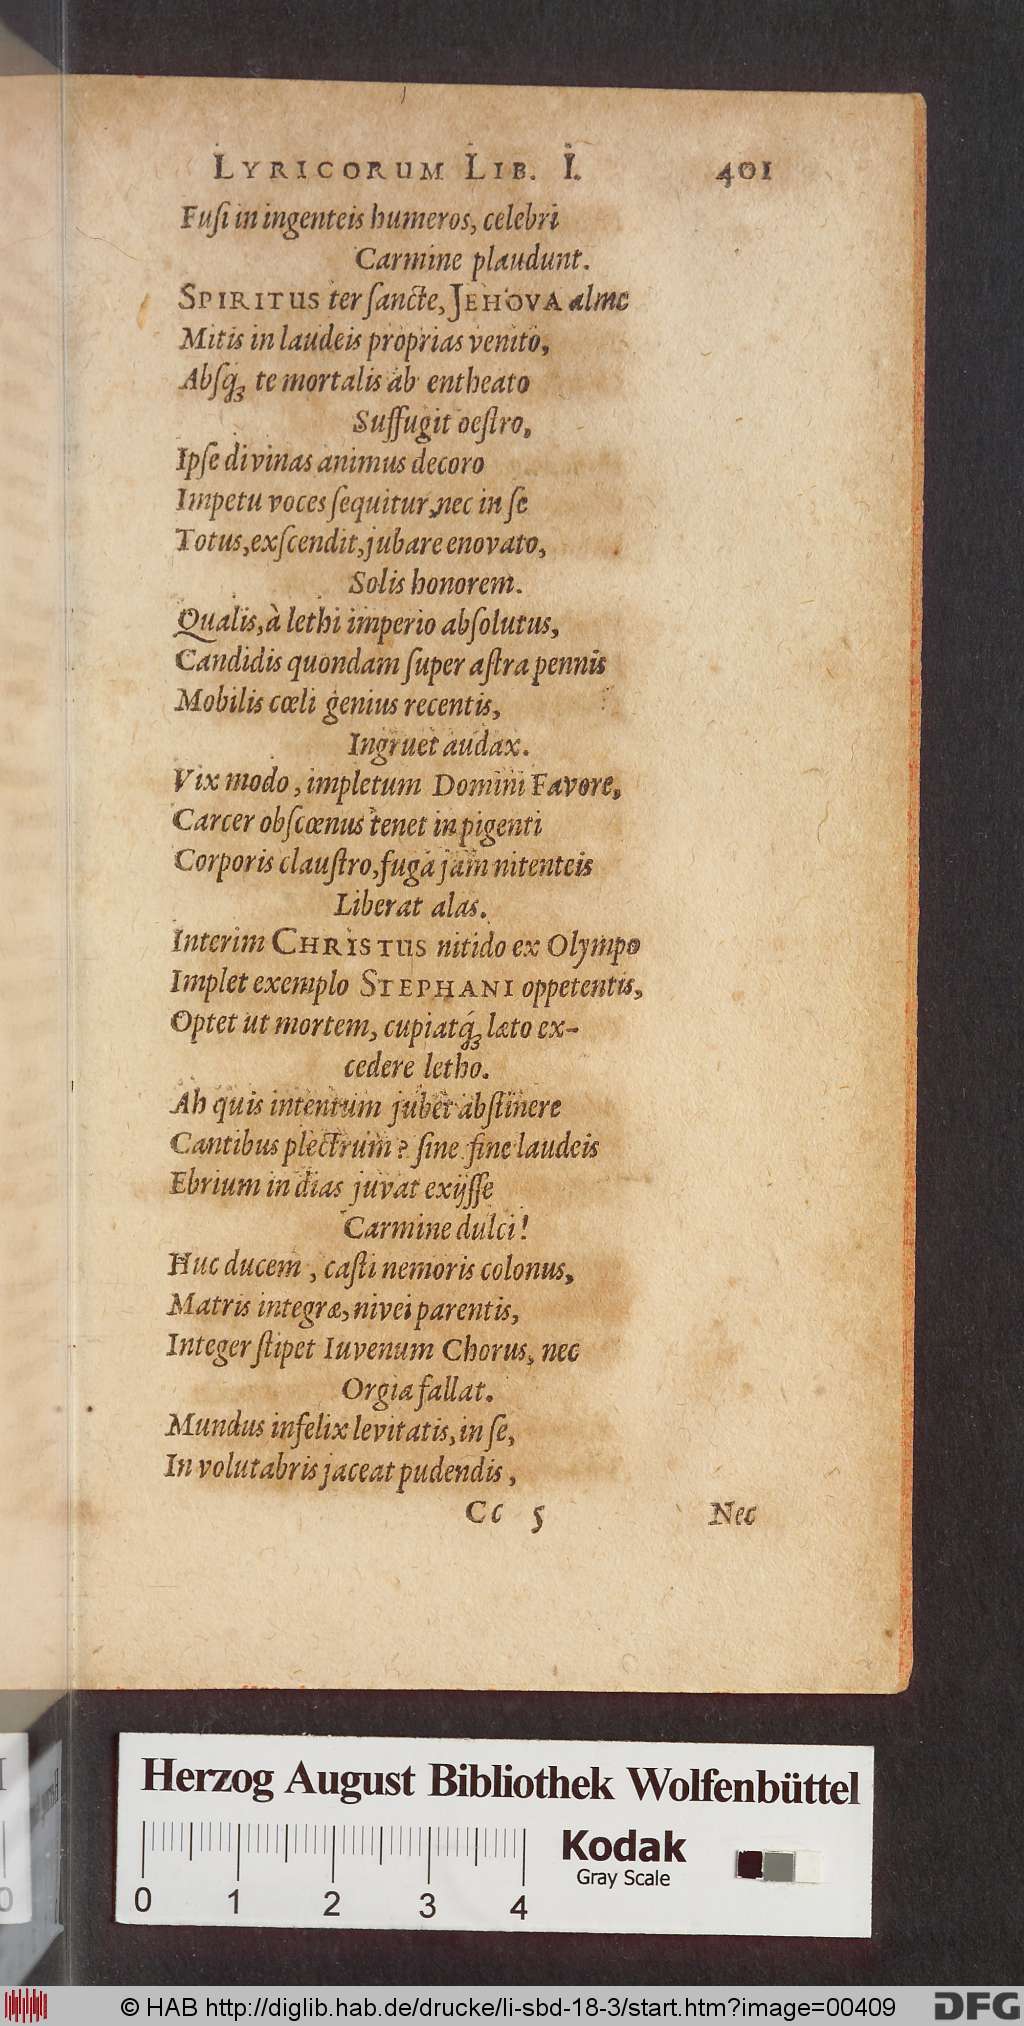 LYRICORUM LIB. I. 401
Fuſi in ingenteis humeros, celebri
Carmine plaudunt.
SPIRITUS ter ſancte, JEHOVA alme
Mitis in laudeis proprias venito,
Abſq́ꝫ te mortalis ab entheato
Suffugit oeſtro,
Ipſe divinas animus decoro
Impetu voces ſequitur, nec in ſe
Totus, exſcendit, jubare enovato,
Solis honorem.
Qualis, à lethi imperio abſolutus,
Candidis quondam ſuper aſtra pennis
Mobilis cœli genius recentis,
Ingruet audax.
Vix modo, impletum Domini Favore,
Carcer obſcœnus tenet in pigenti
Corporis clauſtro, fugâ jam nitenteis
Liberat alas.
Interim CHRISTUS nitido ex Olympo
Implet exemplo STEPHANI oppetentis,
Optet ut mortem, cupiatq́ꝫ læto ex-
cedere letho.
Ah quis intentum jubet abſtinere
Cantibus plectrum? ſine fine laudeis
Ebrium in dias juvat exijſſe
Carmine dulci!
Huc ducem, caſti nemoris colonus,
Matris integræ, nivei parentis,
Integer ſtipet Iuvenum Chorus, nec
Orgia fallat.
Mundus infelix levitatis, in ſe,
In volutabris jaceat pudendis,
Cc 5 Nec
Herzog August Bibliothek Wolfenbüttel
Kodak
Gray Scale
0 1 2 3 4
© HAB http://diglib.hab.de/drucke/li-sbd-18-3/start.htm?image=00409 DFG